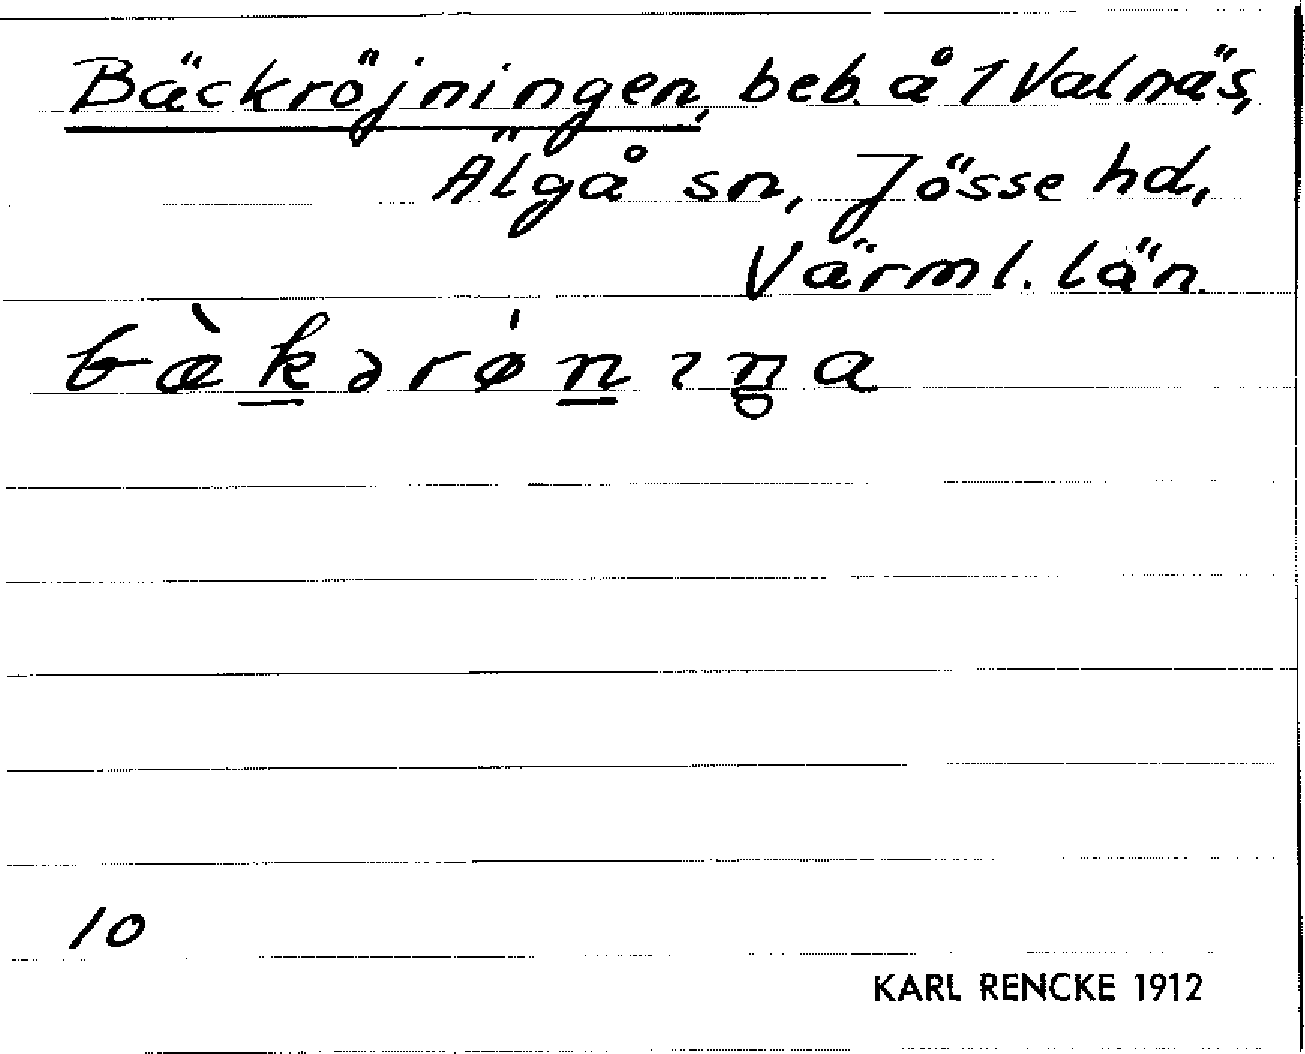 Bäckröjningen, beb. å 1 Valnäs,
Älgå sn, Jösse hd,
Värml. län.
bæ̀k̲ərǿn̲ɩn̲̥a
10
KARL RENCKE 1912